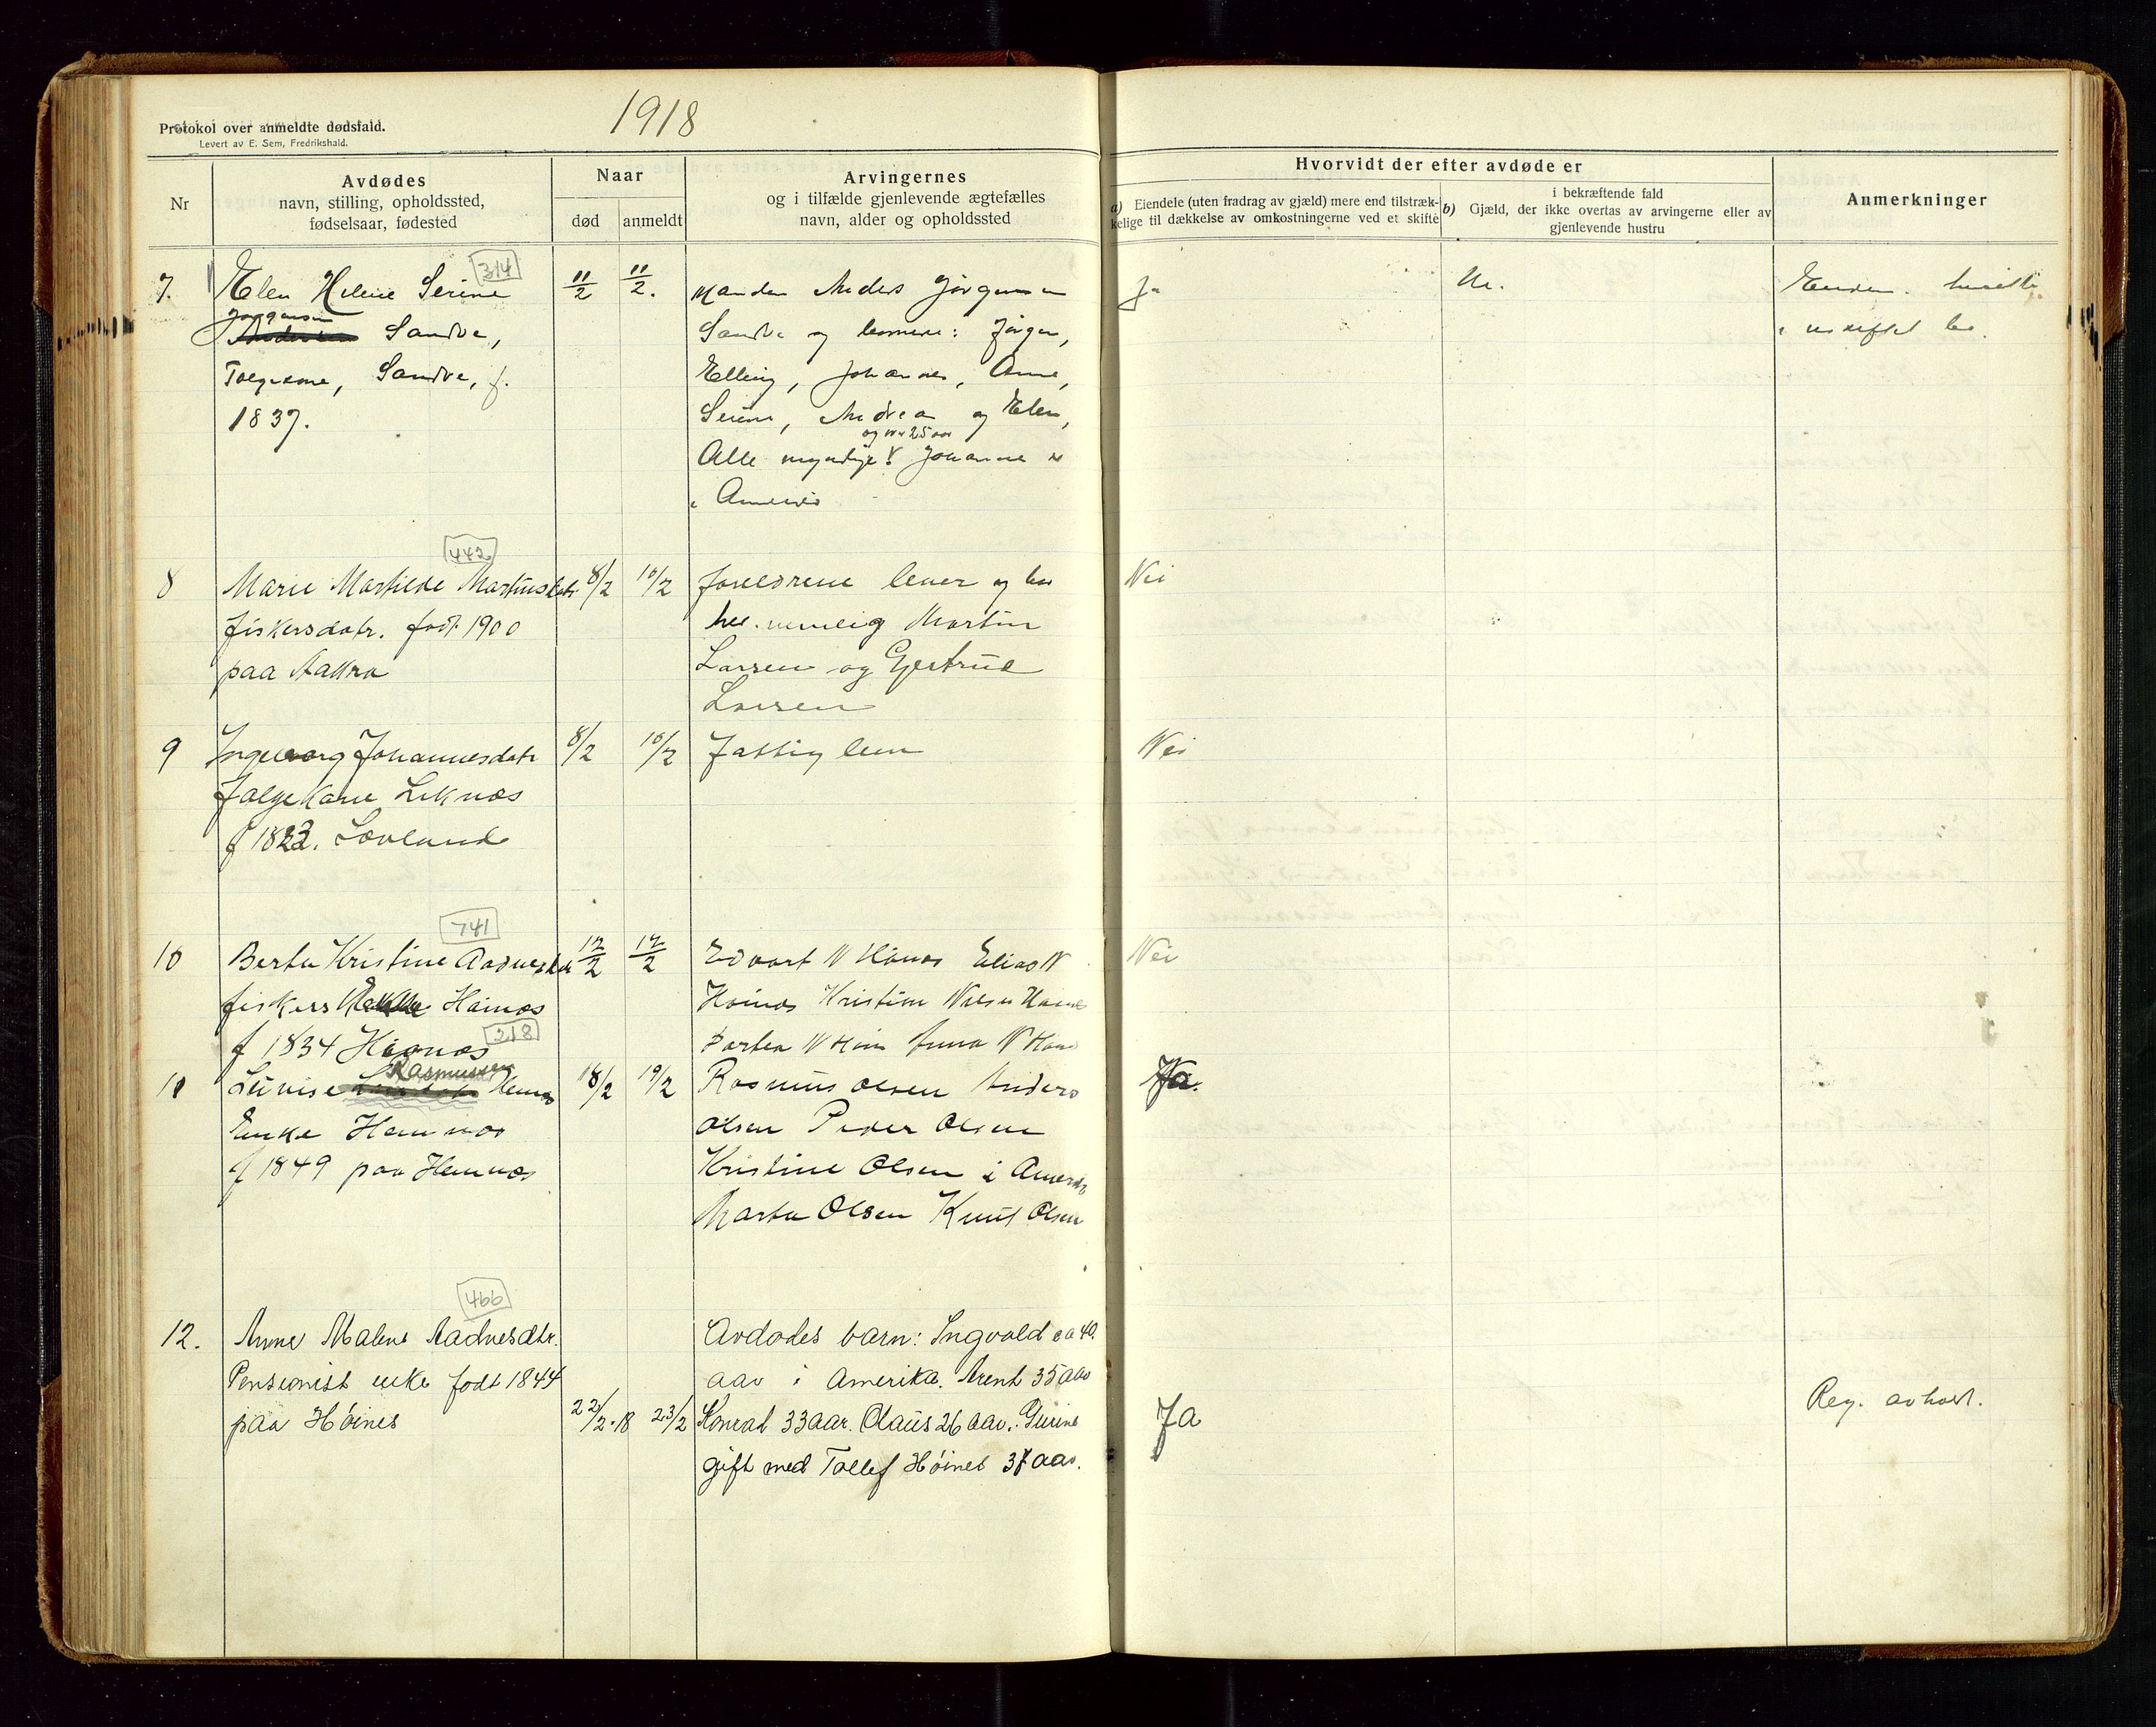 1918
Protokol over anmeldte dødsfald.
Levert av E. Sem, Fredrikshald.
Nr
Avdødes
navn, stilling, opholdssted,
fødselsaar, fødested
Naar
død
anmeldt
Arvingernes
og i tilfælde gjenlevende ægtefælles
navn, alder og opholdssted
Hvorvidt der efter avdøde er
a) Eiendele (uten fradrag av gjæld) mere end tilstræk-
kelige til dækkelse av omkostningerne ved et skifte
b) i bekræftende fald
Gjæld, der ikke overtas av arvingerne eller av
gjenlevende hustru
Anmerkninger
314
7. Elen Helene Serine 11/2 11/2. Manden Anders Jørgensen Ja
Jørgensen
Sandve, Sandve og børnene: Jørgen,
Sandve, f. Elling, Johannes, Anne,
1837. Serine, Andrea og Elen,
og over 25 aar
Alle myndige Johanne
i Amerika
442
8 Marie Martilde Martinsdatr. 8/2 10/2 forældrene lever og Nei
fiskersdatr. født 1900 nemlig Martin
paa Aakra Larsen og Gjertrud
Larsen
9 Ingeborg Johannesdatr 8/2 10/2 Fattig lem Nei
Føderkone Liknes
f 1823. Løvland
741
10 Berta Kristine Aadnesdatr 12/2 12/2 Edvart N Høines Elias N Nei
fiskers Enke Høines Høines Kristine Nilsen Høines
f 1834 Høines N Anna N
218
Rasmussen
11 Lovise Hemnes 18/2 19/2 Rasmus Olsen Anders Ja.
Enke Hemnes Olsen Peder Olsen
f 1849 paa Hemnes Kristine Olsen i Amerika
Marta Olsen Knut Olsen
466
12. Anne Malene Aadnesdtr. Avdødes barn: Ingvald ca 40.
Pensionist enke født 1844 aar i Amerika. Arent 35 aar
paa Høines 22/2-18 23/2 Konrat 33 aar. Claus 26 aar. Gurine Ja Reg. avholt.
gift med Tollef Høines 37 aar.